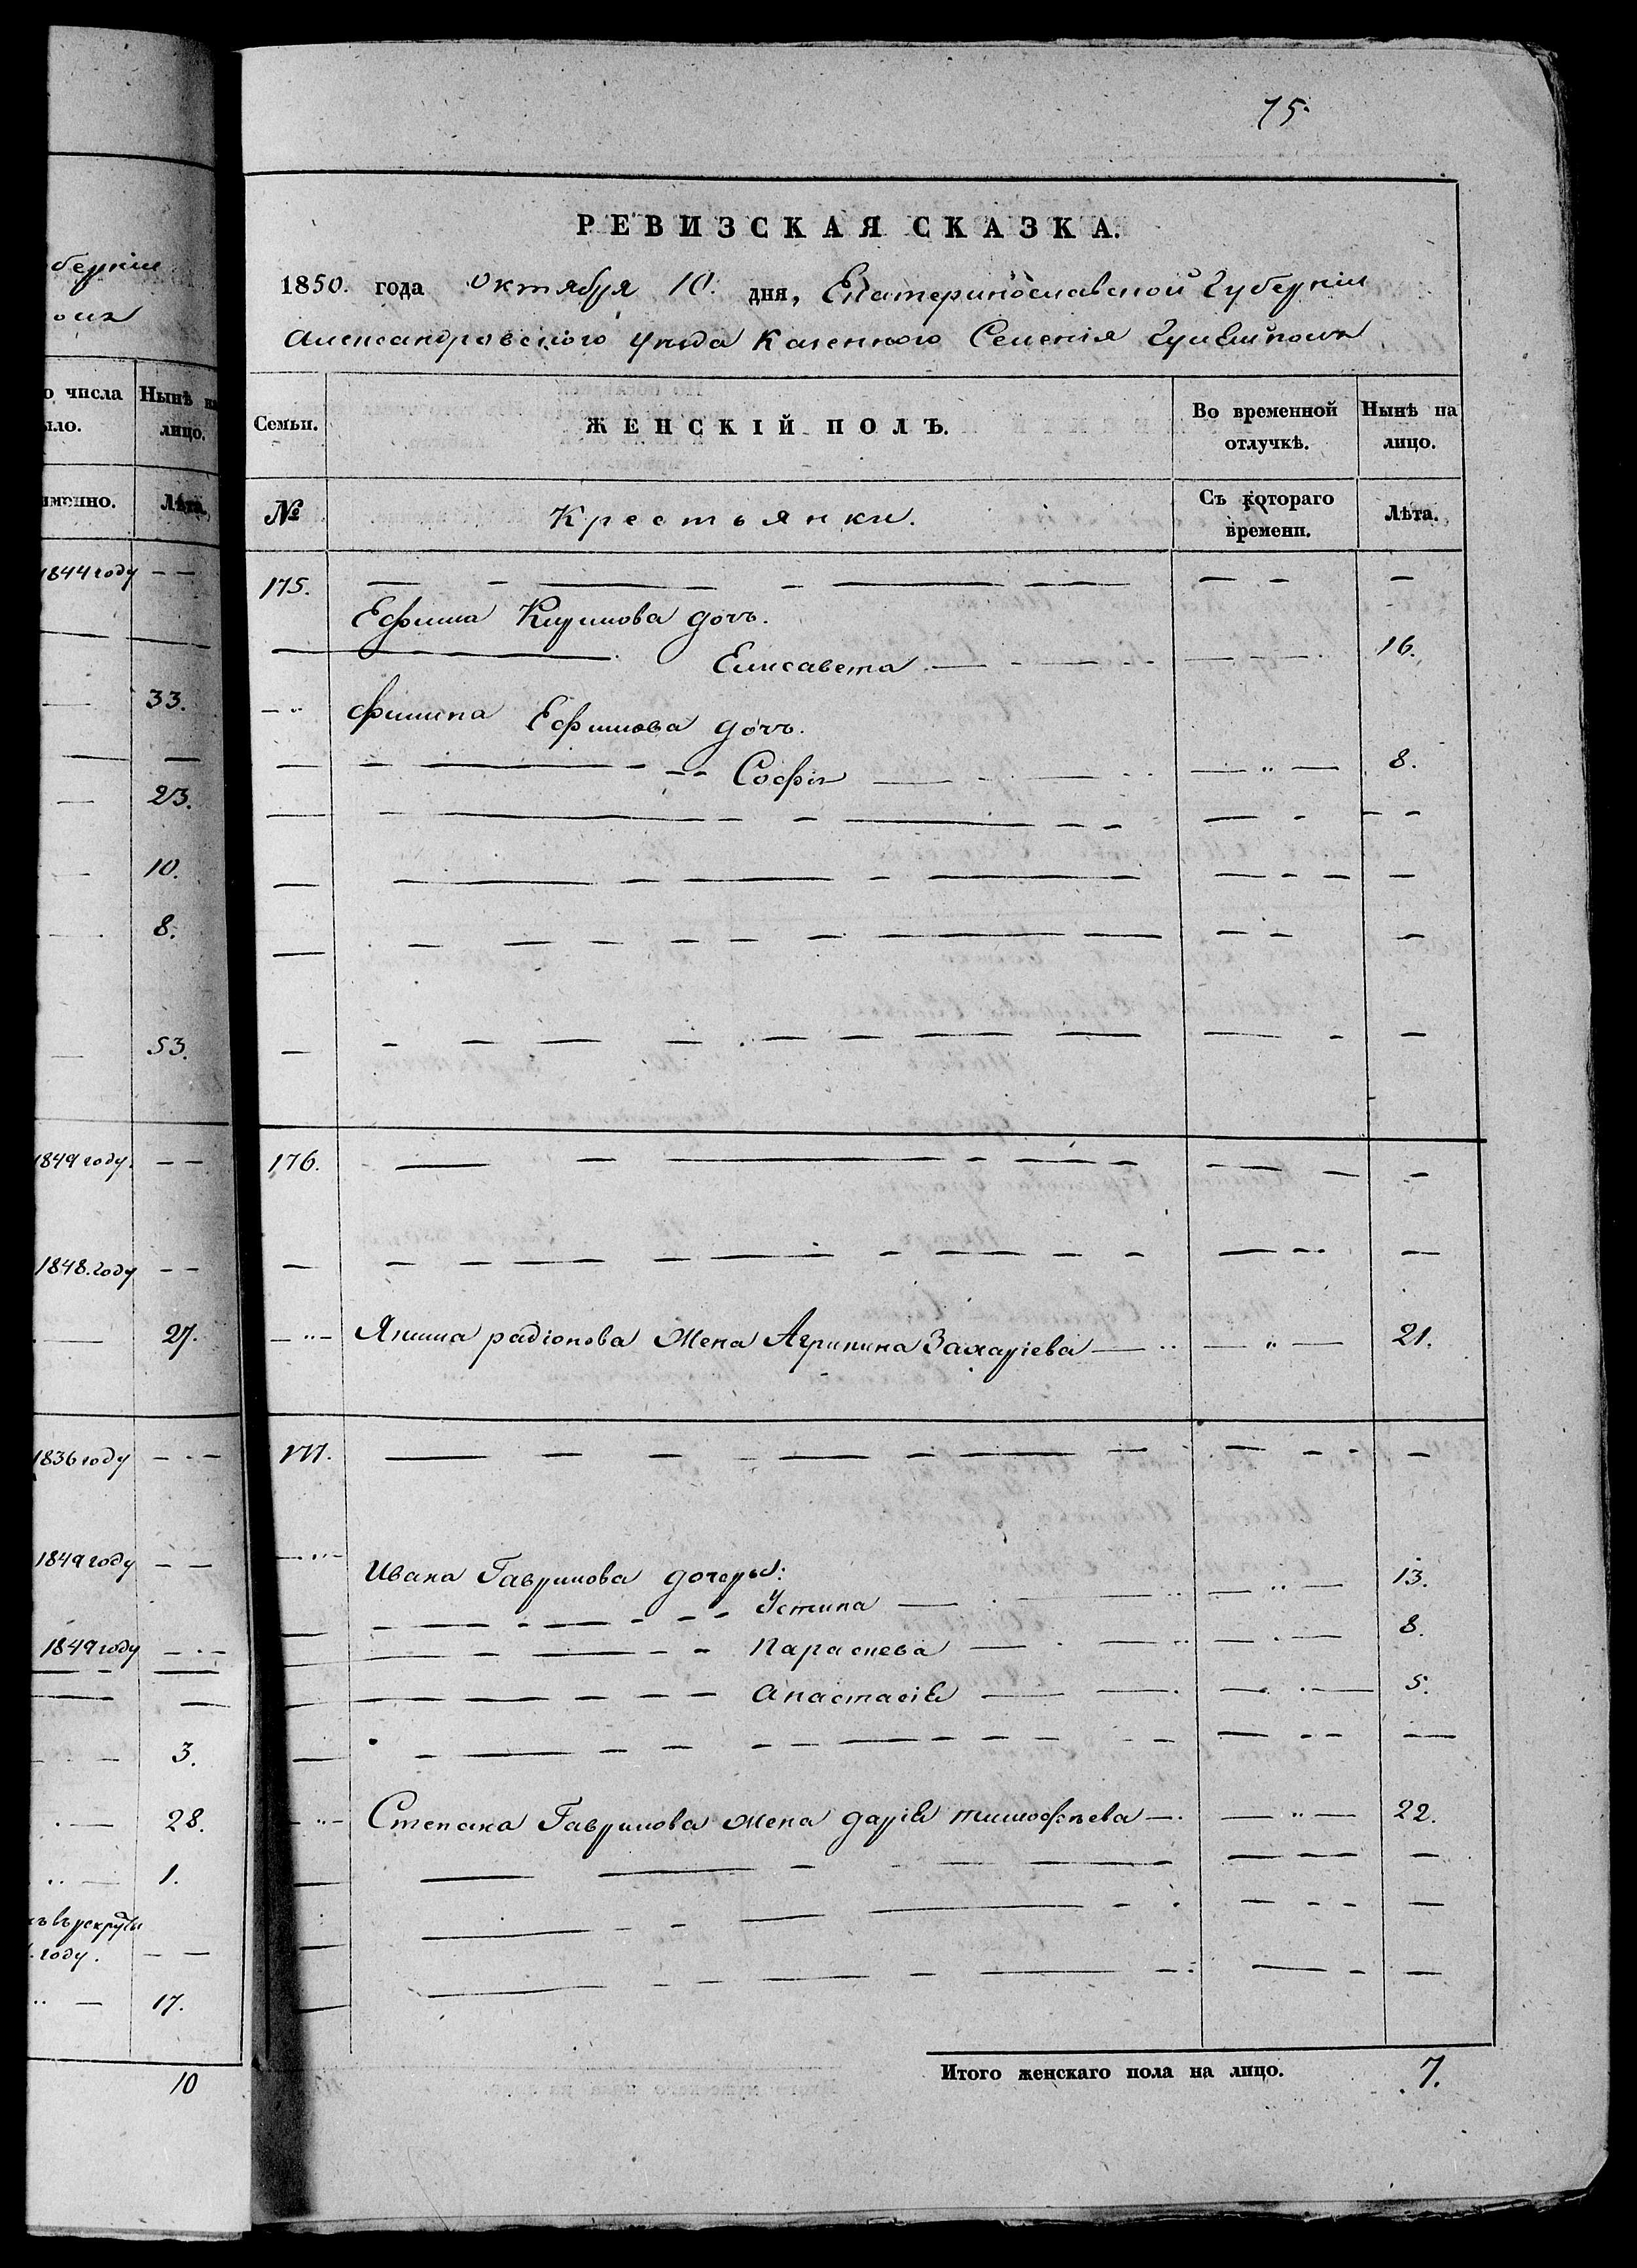 75.
РЕВИЗСКАЯ СКАЗКА.
1850. года Октября 10. дня, Екатеринославской Губерніи
Александровского уезда Казенного Селенія
Семьи.
ЖЕНСКІЙ ПОЛЪ.
Во временной отлучкѣ.
Нынѣ на лицо.
№
Крестьянки.
Съ котораго времени.
Лѣта.
175.
Ефима Кирилова дочь.
Елисавета 16.
Филипа Ефимова дочь.
Софія 8.
176.
Якима радіонова жена Агрипина Захаріева 21.
177.
Ивана Гаврилова дочеры:
Устина 13.
Параскева 8.
Анастасія 5.
Степана Гаврилова жена дарія тимофѣева 22.
Итого женскаго пола на лицо. 7.
губерніи
о числа
ыло.
Нынѣ на
лицо.
именно.
Лѣта.
1844 году
33.
23.
10.
8.
53.
1849 году.
1848. году
27.
1836 году
1849 году
1849 году
3.
28.
1.
въ рекруты
году.
17.
10